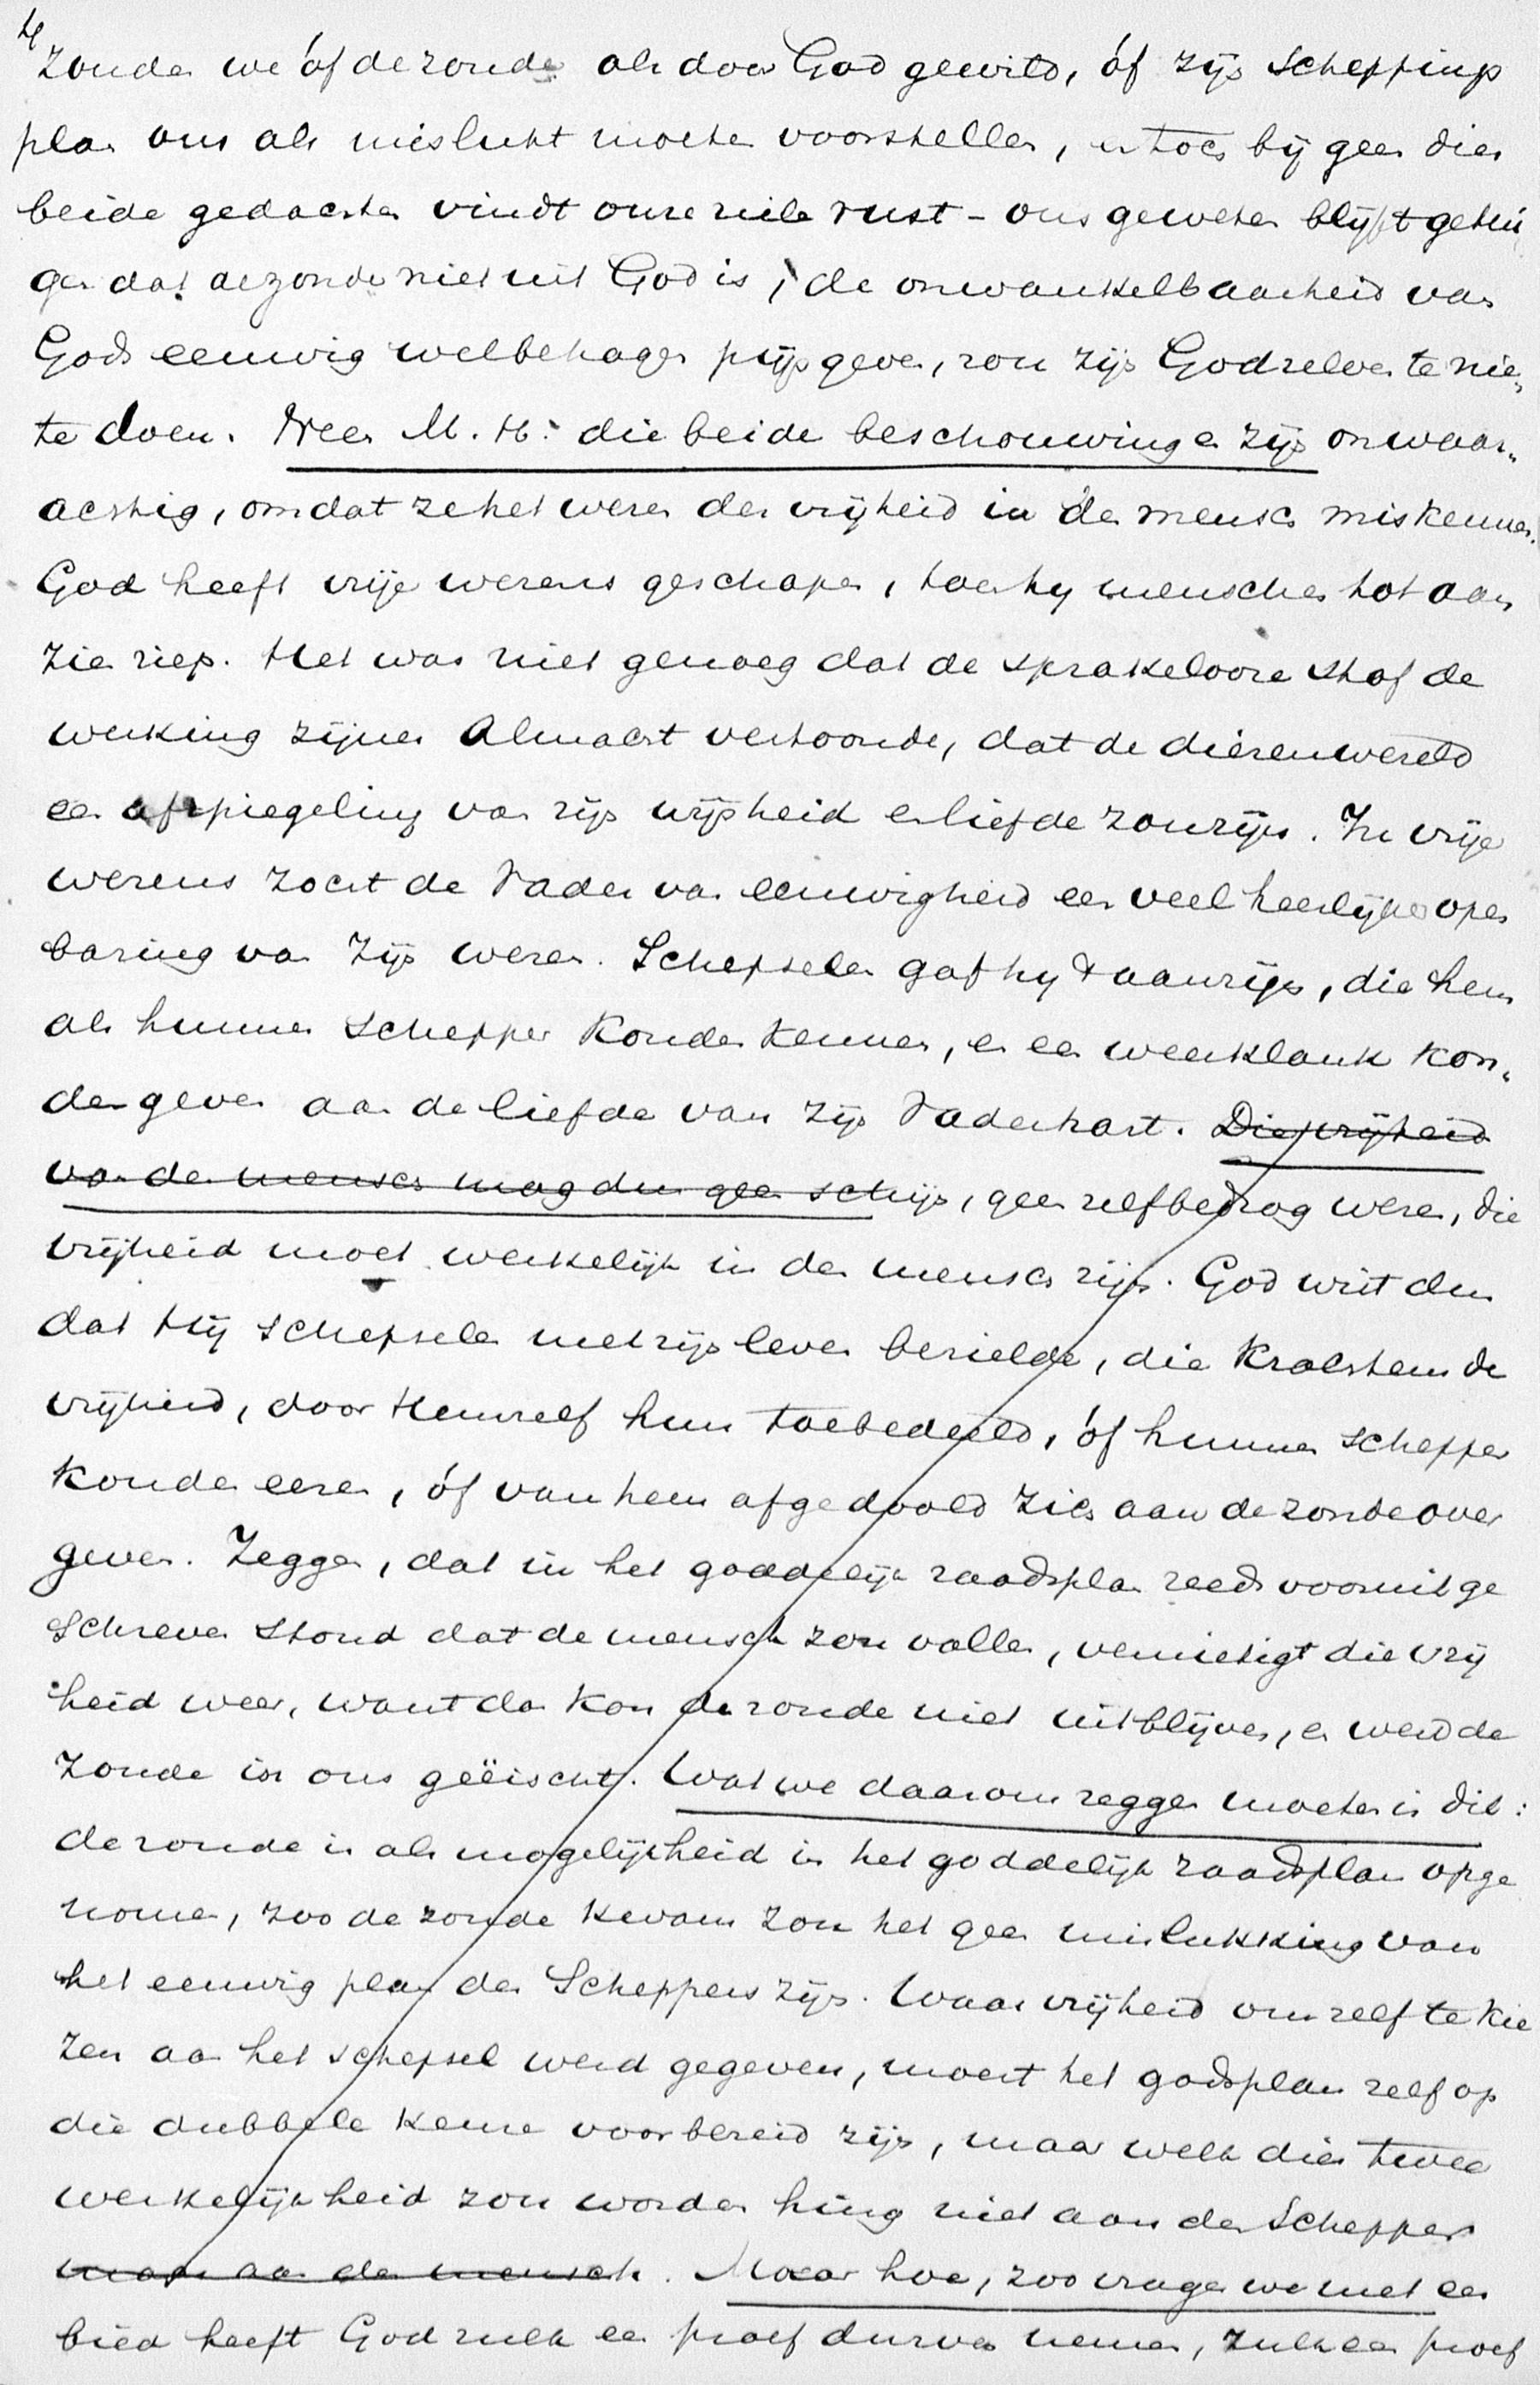 4
zouden we óf de zonde als door God gewild, óf zijn scheppings
plan ons als mislukt moeten voorstellen, en toch bij geen dier
beide gedachten vindt onze ziele rust - ons geweten blijft getui
gen dat de zonde niet uit God is, de onwankelbaarheid van
Gods eeuwig welbehagen prijs geven, zou zijn God zelven te nie„
te doen. Neen M. H. die beide beschouwingen zijn onwaar„
achtig, omdat ze het wezen der vrijheid in den mensch miskennen.
God heeft vrije wezens geschapen, toen hij menschen tot aan
zien riep. Het was niet genoeg dat de sprakelooze stof de
werking zijner Almacht vertoonde, dat de dierenwereld
een afspiegeling van zijn wijsheid en liefde zou zijn. In vrije
wezens zocht de Vader van eeuwigheid een veel heerlijker open
baring van Zijn wezen. Schepselen gaf hij 't aanzijn, die hem
als hunnen Schepper konden kennen, en een weerklank kon„
den geven aan de liefde van zijn Vaderhart. Die vrijheid
van den mensch mag dus geen schijn, geen zelfbedrog wezen, die
vrijheid moet werkelijk in den mensch zijn. God wist dus
dat Hij schepselen met zijn leven bezielde, die krachtens de
vrijheid, door Hemzelf hun toebedeeld, óf hunnen schepper
konden eeren, óf van hem afgedoold zich aan de zonde over
geven. Zeggen, dat in het goddelijk raadsplan reeds vooruit ge
schreven stond dat de mensch zou vallen, vernietigt die vrij
heid weer, want dan kon de zonde niet uitblijven, en werd de
zonde in ons geëischt. Wat we daarom zeggen moeten is dit:
de zonde is als mogelijkheid in het goddelijk raadsplan opge
nomen, zoo de zonde kwam zou het geen mislukking van
het eeuwig plan des Scheppers zijn. Waar vrijheid om zelf te kie
zen aan het schepsel werd gegeven, moest het godsplan zelf op
die dubbele keuze voorbereid zijn, maar welk dier twee
werkelijkheid zou worden hing niet aan den Schepper
maar aan den mensch. Maar hoe, zoo vragen we met eer
bied heeft God zulk een proef durven nemen, zulk een proef